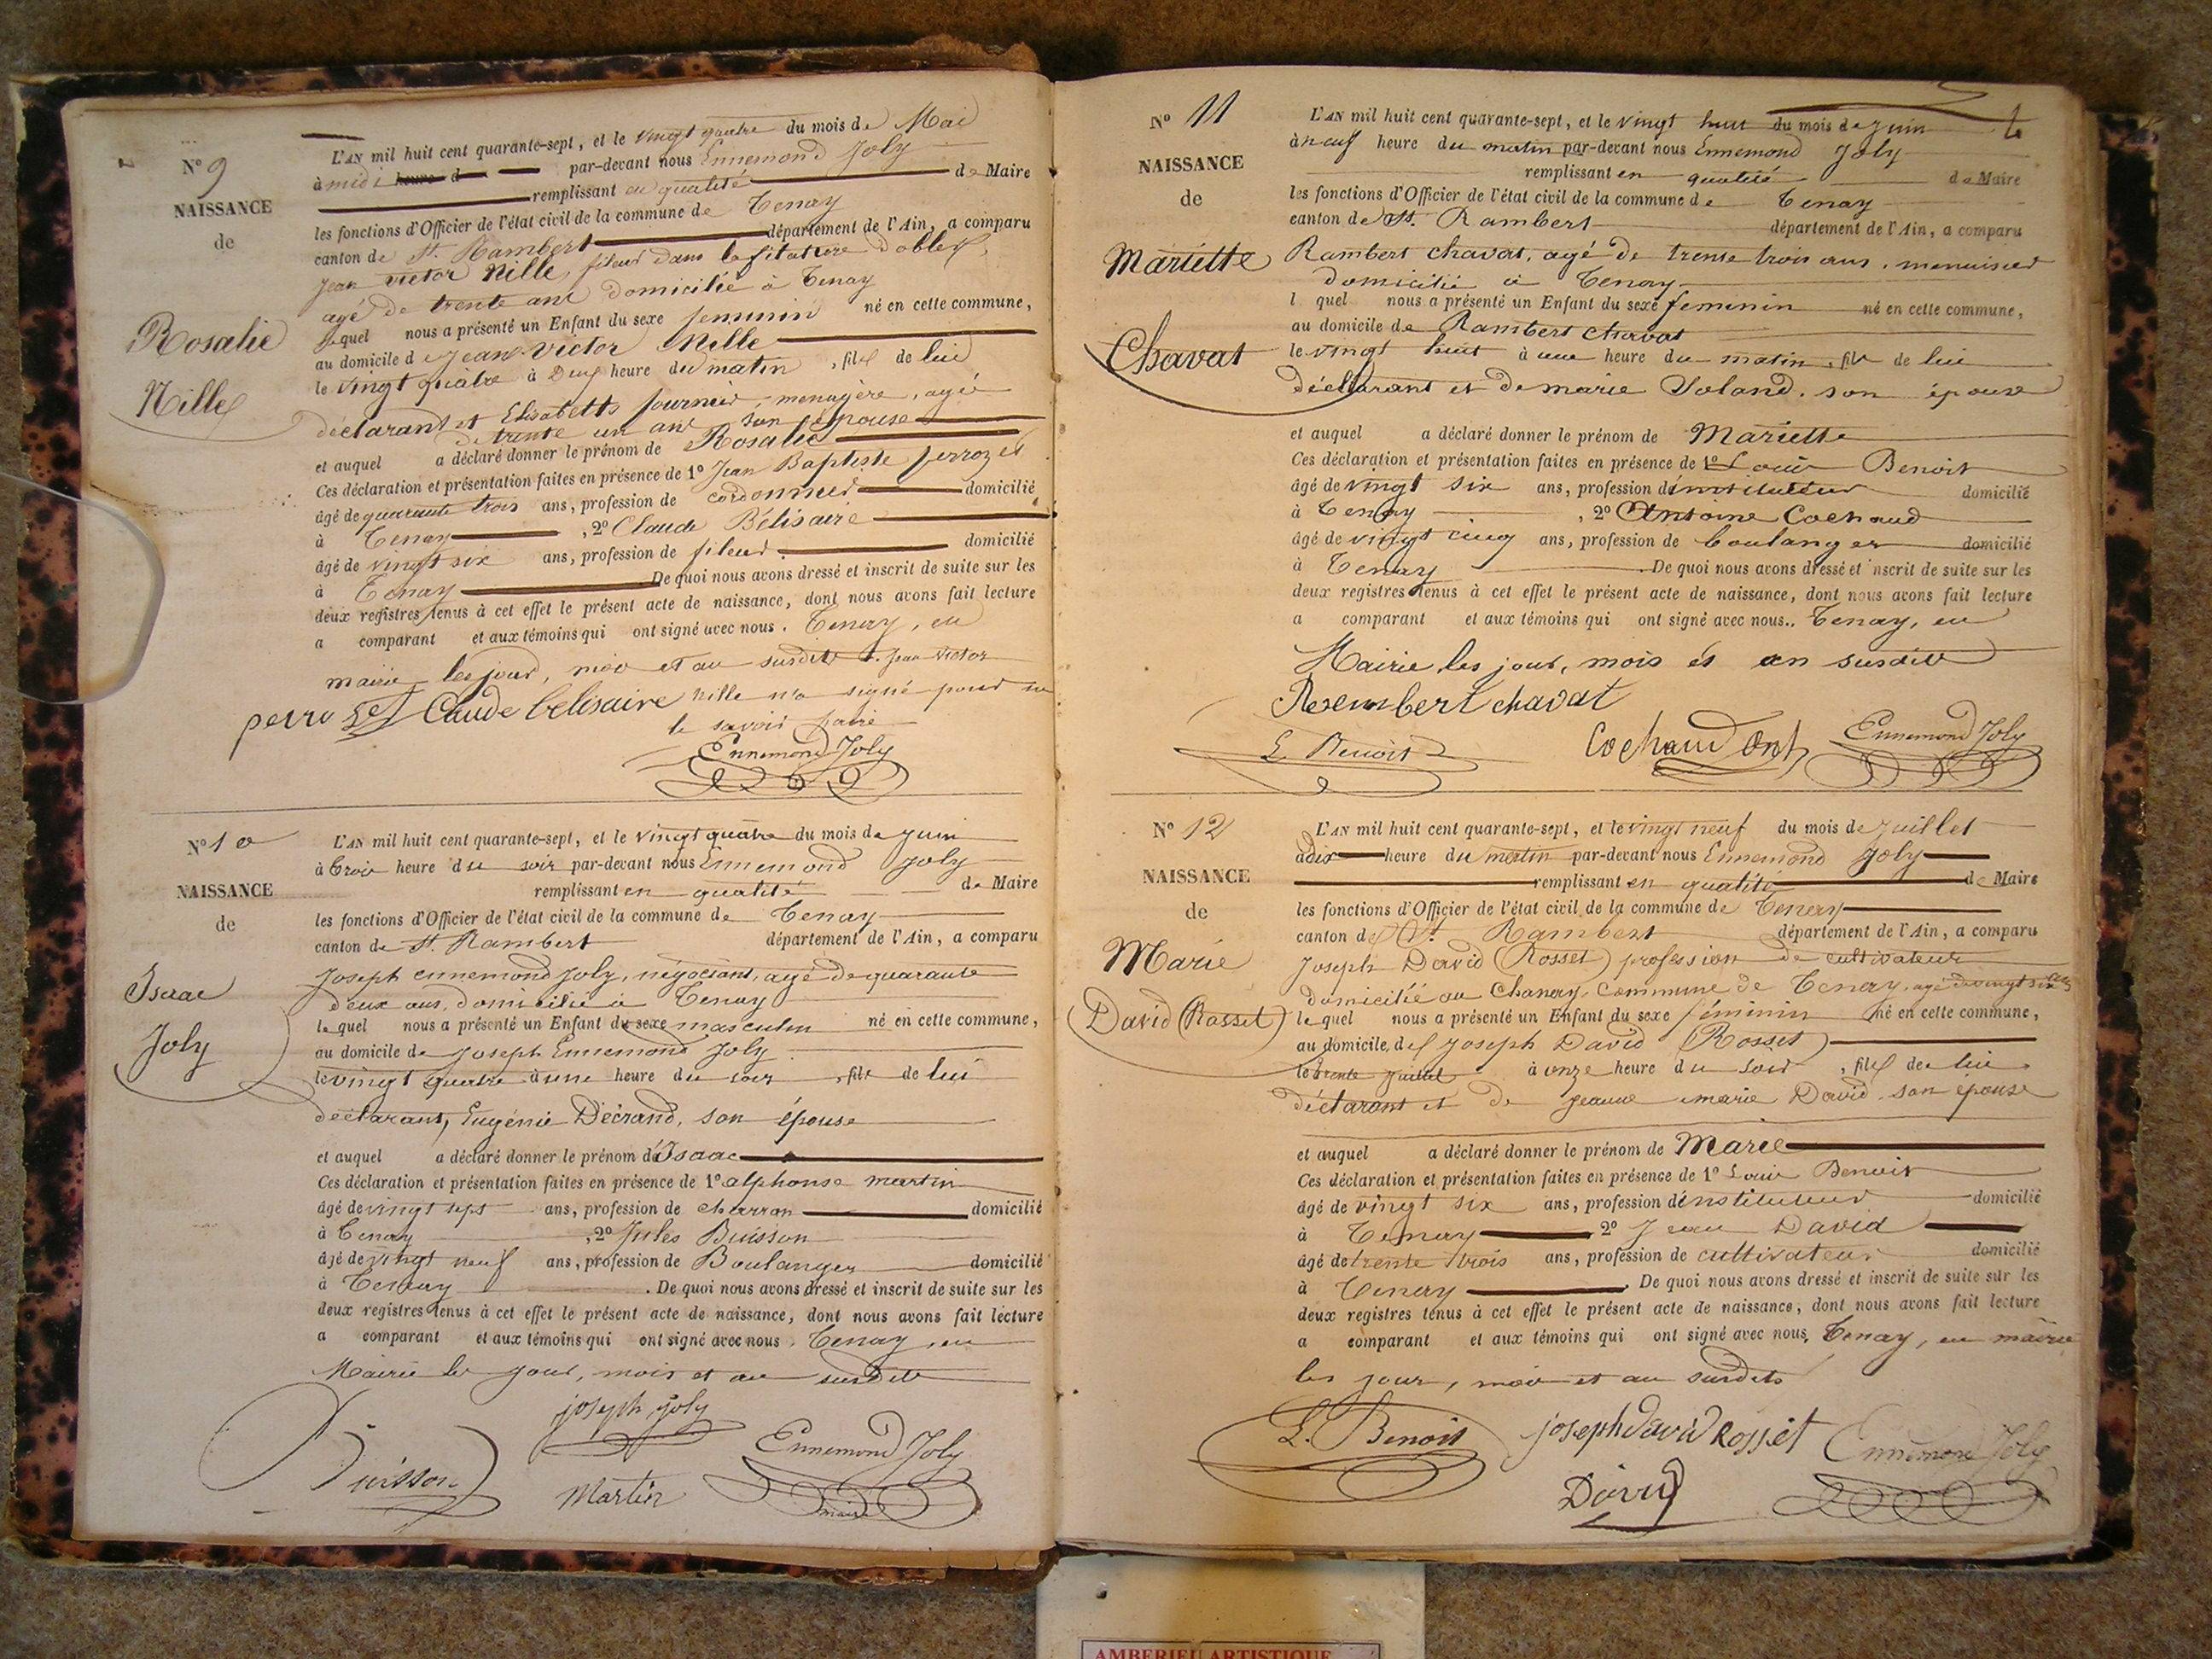 N° 9
NAISSANCE
de
Rosalie
Nille
L'AN mil huit cent quarante-sept, et le vingt quatre du mois de Mai
à midi heure d par-devant nous Ennemond Joly
remplissant en qualité de Maire
les fonctions d'Officier de l'état civil de la commune de Tenay
canton de St. Rambert département de l'Ain, a comparu
Jean victor Nille, fileur dans la filature
agé de trente ans domicilié à Tenay
lequel nous a présenté un Enfant du sexe feminin né en cette commune,
au domicile de Jean Victor Nille
le vingt quatre à Deux heure du matin, fille de lui
déclarant et Elisabeth fournier, menagère, agée
de trente un ans son épouse
et auquel a déclaré donner le prénom de Rosalie
Ces déclaration et présentation faites en présence de 1° Jean Baptiste perrozet
âgé de quarante trois ans, profession de cordonnier domicilié
à Tenay, 2° Claude Bélisaire
âgé de vingt six ans, profession de fileur domicilié
à Tenay De quoi nous avons dressé et inscrit de suite sur les
deux registres tenus à cet effet le présent acte de naissance, dont nous avons fait lecture
a comparant et aux témoins qui ont signé avec nous. Tenay, en
mairie les jour, mois et an susdits. Jean Victor
Claude belisaire nille n'a signé pour ne
le savoir faire
Ennemond Joly
N° 10
NAISSANCE
de
Isaac
Joly
L'AN mil huit cent quarante-sept, et le vingt quatre du mois de juin
à trois heure du soir par-devant nous Ennemond Joly
remplissant en qualité de Maire
les fonctions d'Officier de l'état civil de la commune de Tenay
canton de St. Rambert département de l'Ain, a comparu
Joseph ennemond Joly, négociant, agé de quarante
deux ans, domicilié à Tenay
lequel nous a présenté un Enfant du sexe masculin né en cette commune,
au domicile de Joseph Ennemond Joly
le vingt quatre à une heure du soir, fils de lui
déclarant, Eugénie Décrand, son épouse
et auquel a déclaré donner le prénom d'Isaac
Ces déclaration et présentation faites en présence de 1° alphonse martin
âgé de vingt sept ans, profession de charron domicilié
à Tenay, 2° Jules Buisson
âgé de vingt neuf ans, profession de Boulanger domicilié
à Tenay. De quoi nous avons dressé et inscrit de suite sur les
deux registres tenus à cet effet le présent acte de naissance, dont nous avons fait lecture
a comparant et aux témoins qui ont signé avec nous. Tenay, en
Mairie les jour, mois et an susdits
joseph joly
Buisson
Martin
Ennemond Joly
maire
N° 11
NAISSANCE
de
Mariette
Chavat
L'AN mil huit cent quarante-sept, et le vingt huit du mois de juin
à neuf heure du matin par-devant nous Ennemond Joly
remplissant en qualité de Maire
les fonctions d'Officier de l'état civil de la commune de Tenay
canton de St. Rambert département de l'Ain, a comparu
Rambert chavat, agé de trente trois ans, menuisier
domicilié à Tenay
l quel nous a présenté un Enfant du sexe feminin né en cette commune,
au domicile de Rambert chavat
le vingt huit à une heure du matin, fille de lui
déclarant et de marie Soland, son épouse
et auquel a déclaré donner le prénom de Mariette
Ces déclaration et présentation faites en présence de 1° Louis Benoit
âgé de vingt six ans, profession d'instituteur domicilié
à Tenay, 2° Antoine Cochaud
âgé de vingt cinq ans, profession de boulanger domicilié
à Tenay. De quoi nous avons dressé et inscrit de suite sur les
deux registres tenus à cet effet le présent acte de naissance, dont nous avons fait lecture
a comparant et aux témoins qui ont signé avec nous.. Tenay, en
Mairie les jour, mois et an susdits
Rembert chavat
L. Benoit
Cochaud Ant
Ennemond Joly
N° 12
NAISSANCE
de
Marie
David (Rosset)
L'AN mil huit cent quarante-sept, et le vingt neuf du mois de juillet
à dix heure du matin par-devant nous Ennemond Joly
remplissant en qualité de Maire
les fonctions d'Officier de l'état civil de la commune de Tenay
canton de St Rambert département de l'Ain, a comparu
Joseph David (Rosset) profession de cultivateur
domicilié au Chanay, commune de Tenay, agé de vingt six ans
lequel nous a présenté un Enfant du sexe féminin né en cette commune,
au domicile de Joseph David (Rosset)
le trente juillet à onze heure du soir, fille de lui
déclarant et de jeanne marie David, son épouse
et auquel a déclaré donner le prénom de Marie
Ces déclaration et présentation faites en présence de 1° Louis Benoit
âgé de vingt six ans, profession d'instituteur domicilié
à Tenay 2° Jean David
âgé de trente trois ans, profession de cultivateur domicilié
à Tenay. De quoi nous avons dressé et inscrit de suite sur les
deux registres tenus à cet effet le présent acte de naissance, dont nous avons fait lecture
a comparant et aux témoins qui ont signé avec nous, Tenay, en mairie
les jour, mois et an susdits
L. Benoit
joseph david Rosset
Ennemond Joly
David
AMBERIEU ARTISTIQUE